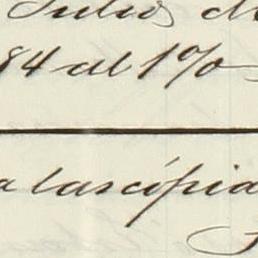 Julio, d
84 al 1%
a las cópia